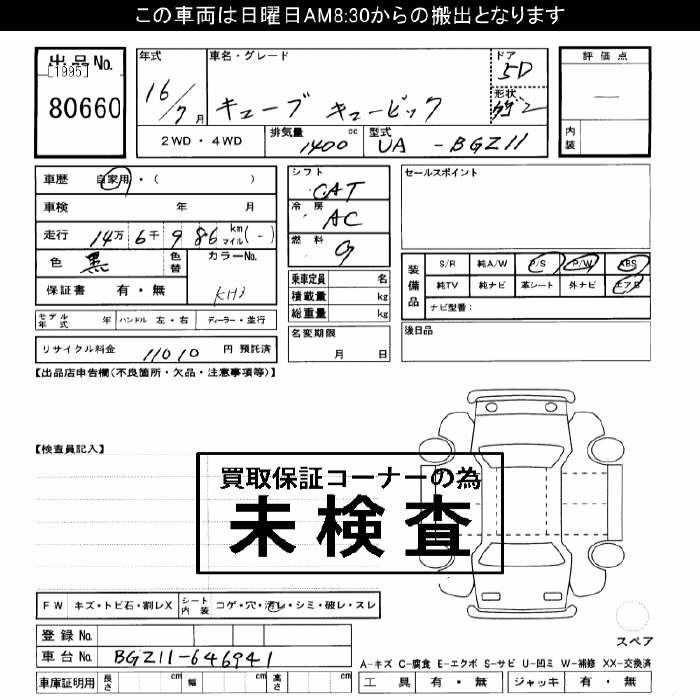 この車両は日曜日AM8:30からの搬出となります
出品No.
[1995]
80660
年式
16/7月
車名・グレード
キューブ キュービック
ドア
5D
形状
評価点
―
内装
2WD・4WD
排気量
1400cc
型式
UA-BGZ11
車歴 自家用・( )
車検 年 月
走行 14万6千986km マイル(-)
色 黒 色替 カラーNo.
KH3
保証書 有・無
モデル年式 年 ハンドル 左・右 ディーラー・並行
リサイクル料金 11010円 預託済
シフト
CAT
冷房
AC
燃料
G
乗車定員 名
積載量 kg
総重量 kg
名変期限
月 日
セールスポイント
装備品
S/R 純A/W P/S P/W ABS
純TV 純ナビ 革シート 外ナビ エアB
ナビ型番:
後日品
【出品店申告欄(不良箇所・欠品・注意事項等)】
【検査員記入】
買取保証コーナーの為
未検査
FW キズ・トビ石・割レX シート内装 コゲ・穴・汚レ・シミ・破レ・スレ
登録No.
車台No. BGZ11-646941
車庫証明用 長さ cm 幅 cm 高さ cm
スペア
A-キズ C-腐食 E-エクボ S-サビ U-凹ミ W-補修 XX-交換済
工具 有・無 ジャッキ 有・無